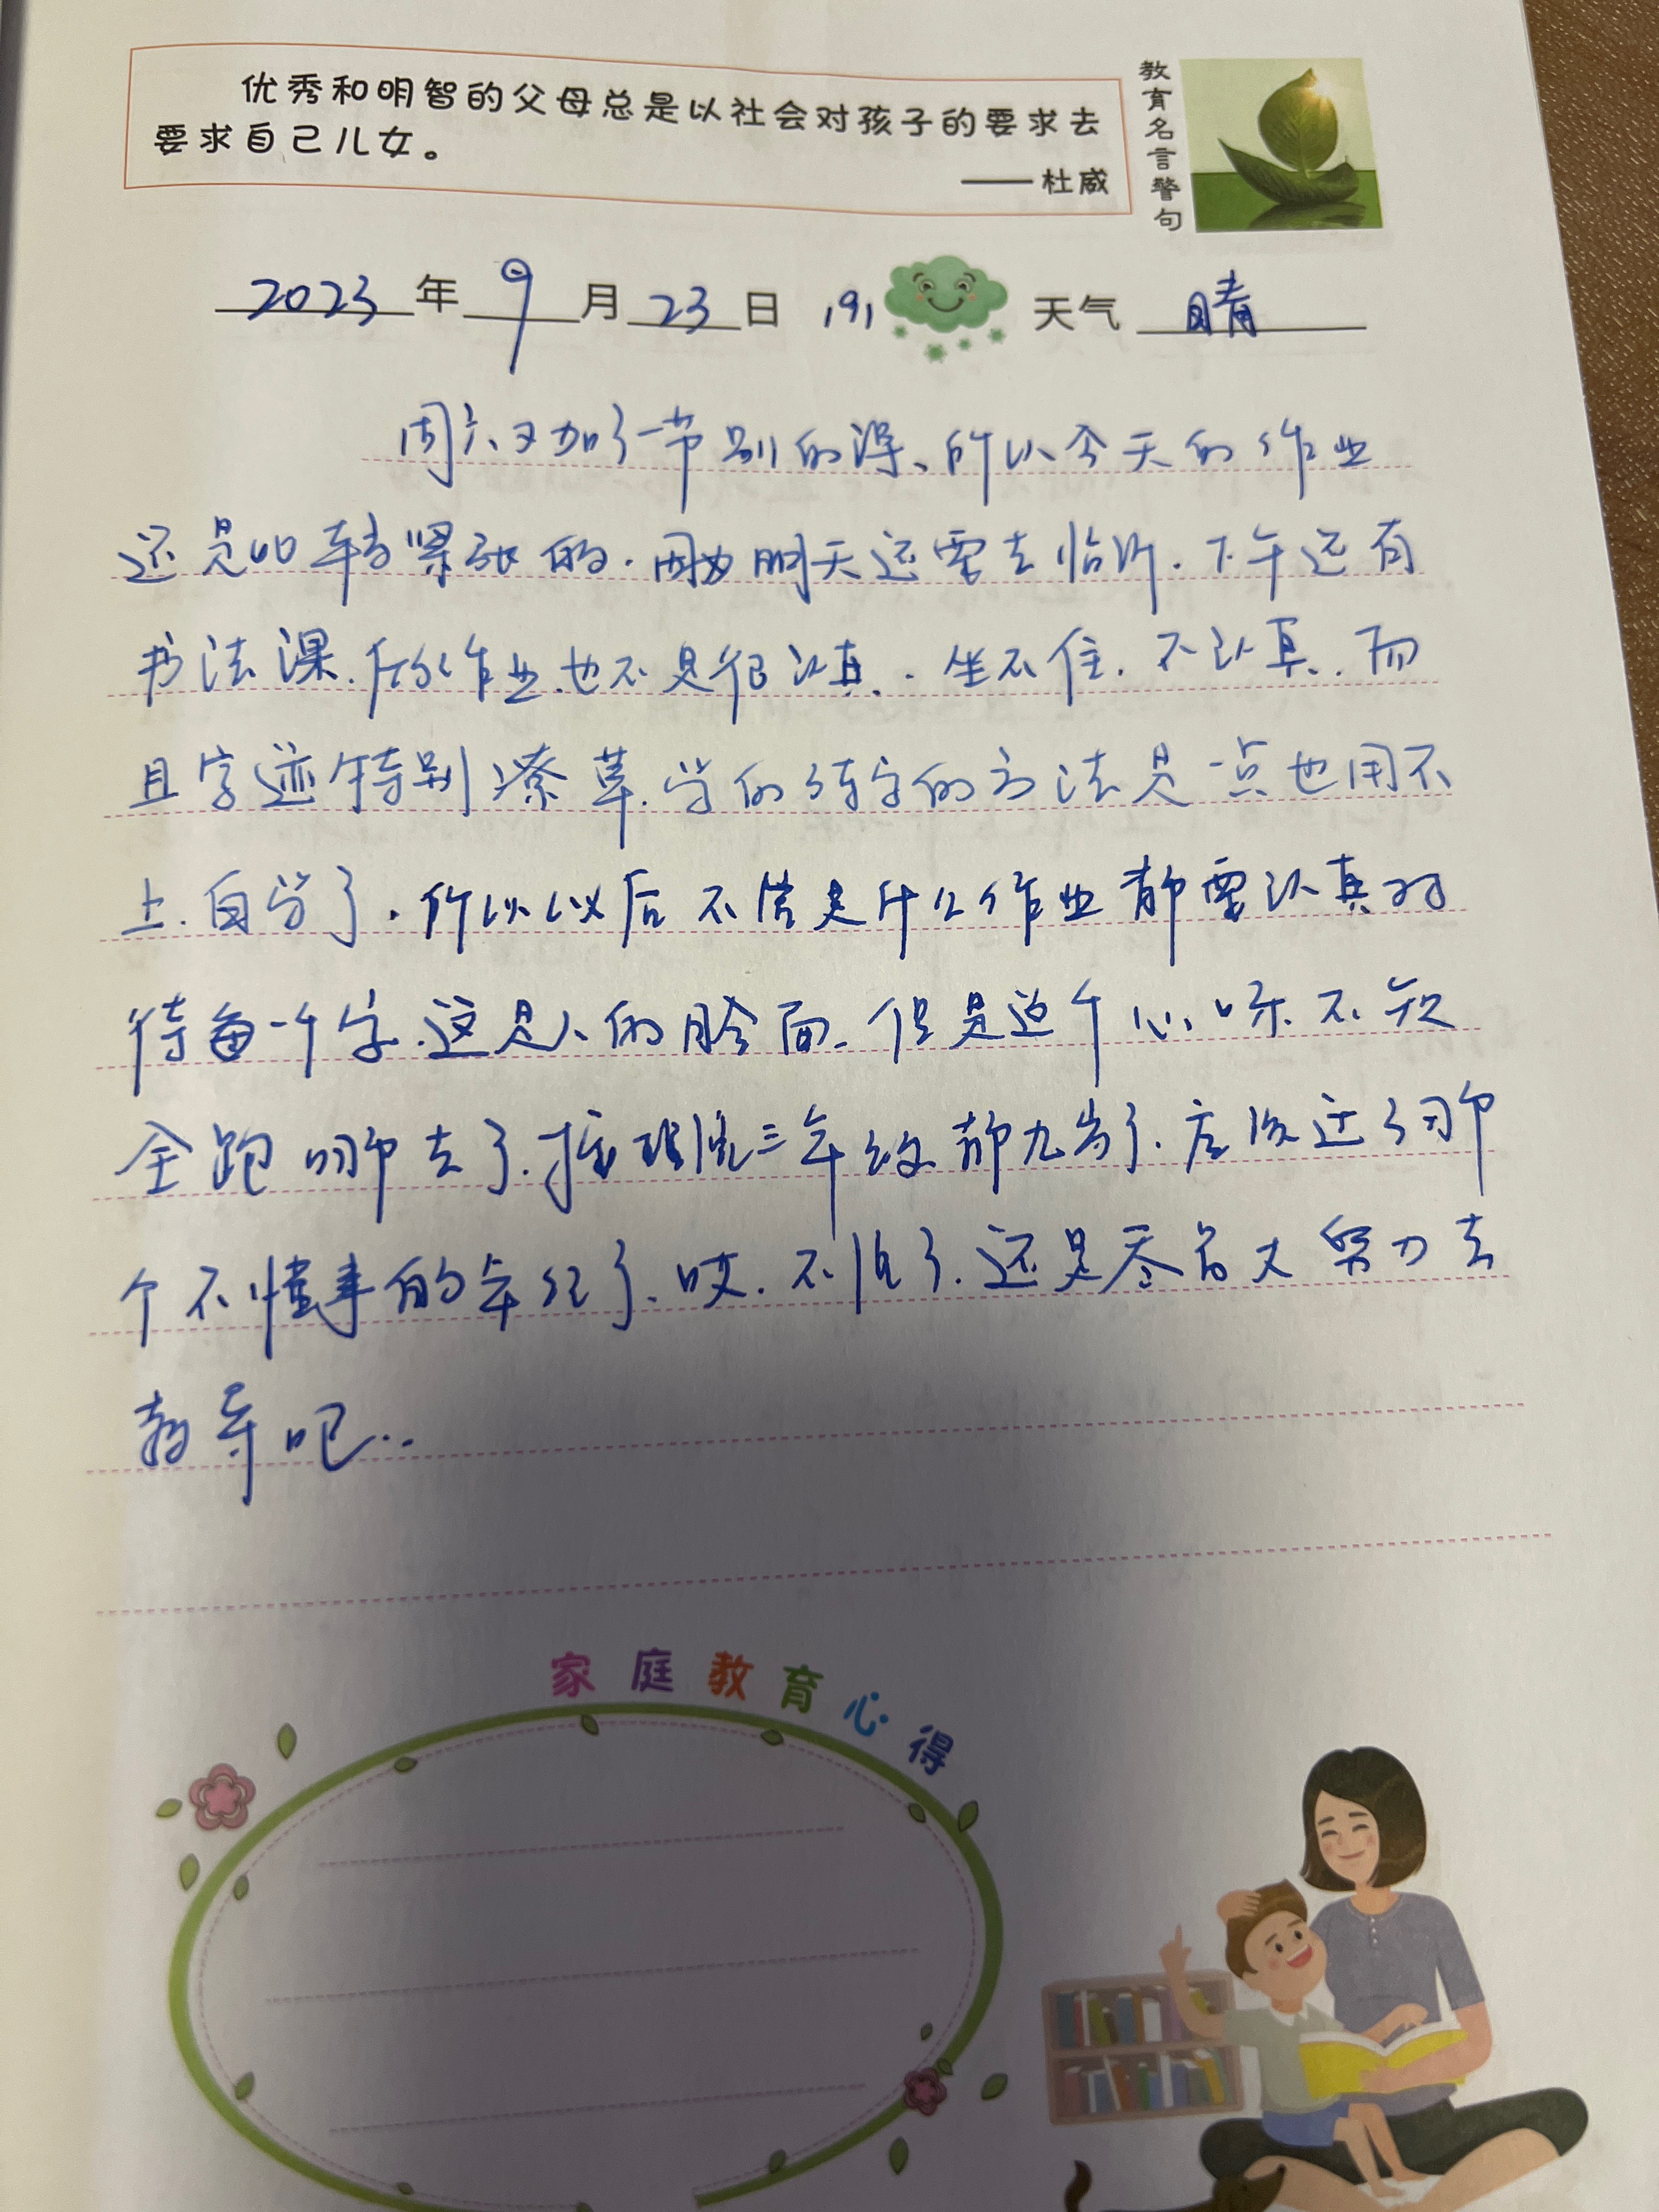 优秀和明智的父母总是以社会对孩子的要求去
要求自己儿女。
——杜威
教育名言警句
2023年9月23日 191 天气 晴
周六又加了一节别的课、所以今天的作业
还是比较紧张的.因为明天还需去临沂.下午还有
书法课.所以作业也不是很认真.坐不住.不认真.而
且字迹特别潦草.学的练字的方法是一点也用不
上.白学了.所以以后不管是什么作业都要认真对
待每一个字.这是人的脸面.但是这个心呀不知
全跑哪去了.按理说三年级都九岁了.应该过了那
个不懂事的年纪了.哎.不说了.还是尽最大努力去
教导吧...
家庭教育心得